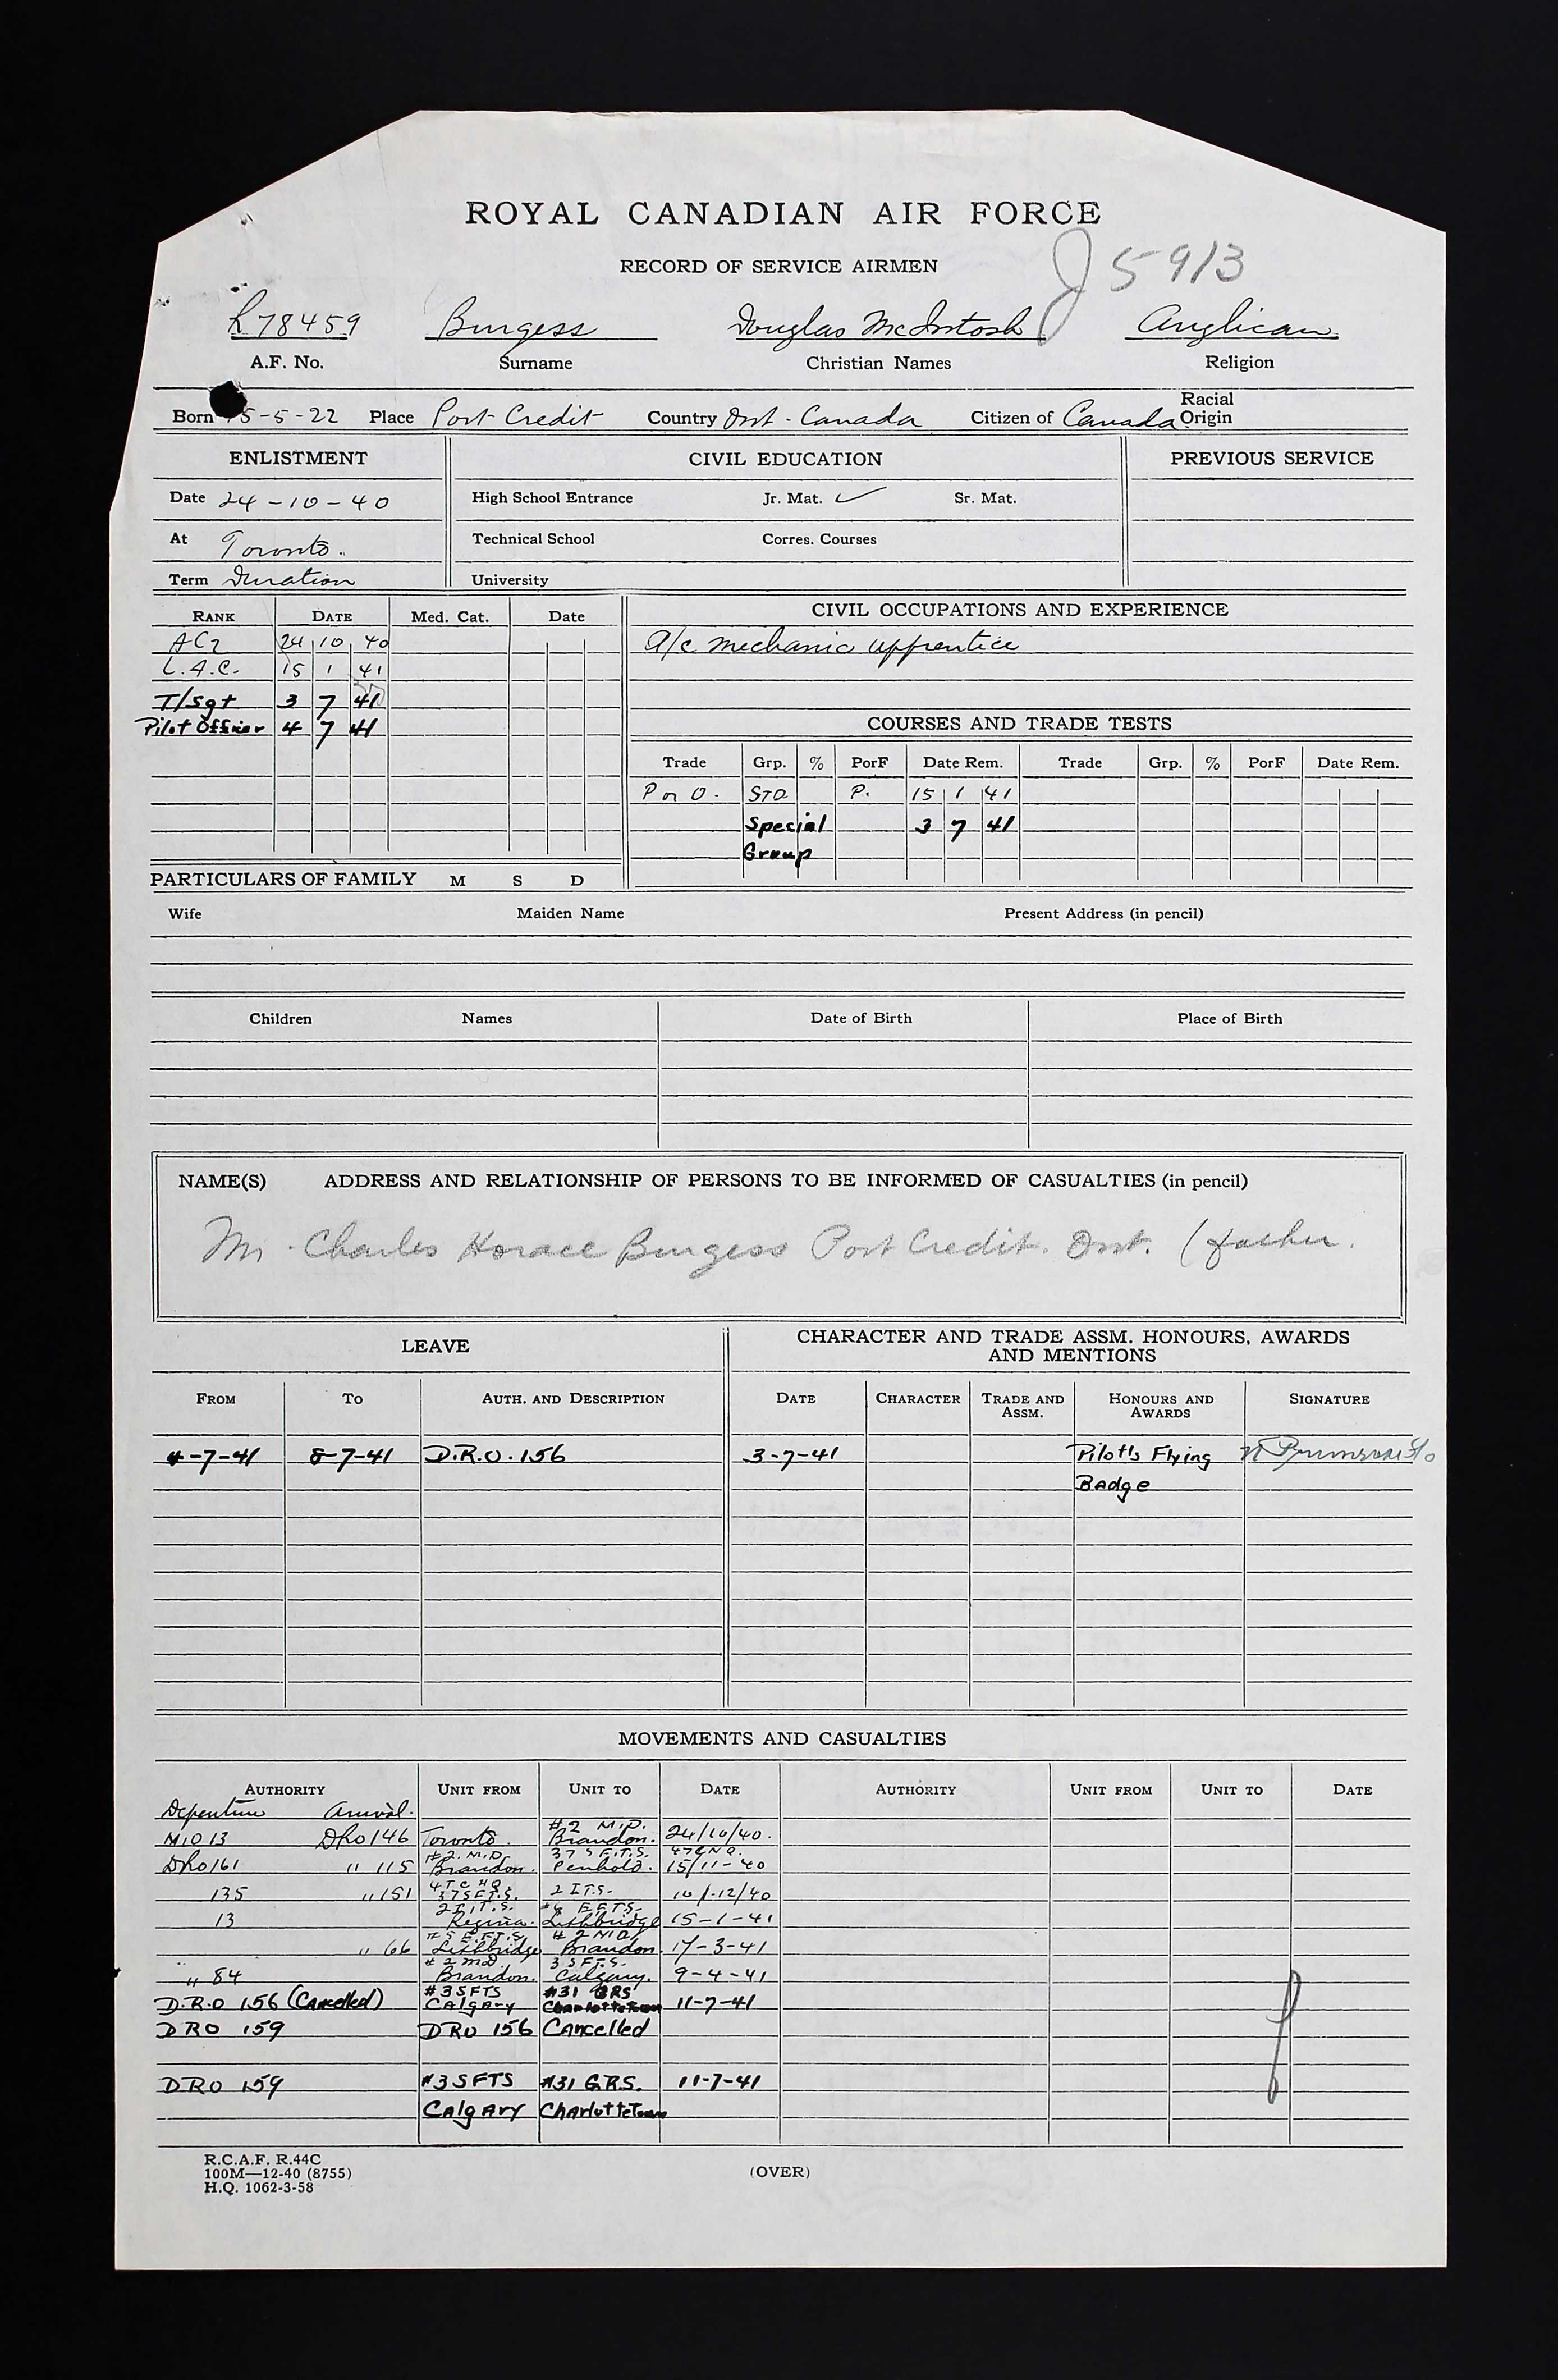 ROYAL CANADIAN AIR FORCE
RECORD OF SERVICE AIRMEN
J 5913
R78459 Burgess Douglas McIntosh Anglican
A.F. No. Surname Christian Names Religion
Born 5-5-22 Place Port Credit Country Ont - Canada Citizen of Canada Racial Origin
ENLISTMENT CIVIL EDUCATION PREVIOUS SERVICE
Date 24-10-40 High School Entrance Jr. Mat. ✓ Sr. Mat.
At Toronto. Technical School Corres. Courses
Term Duration University
RANK DATE Med. Cat. Date CIVIL OCCUPATIONS AND EXPERIENCE
AC2 24 10 40 A/c mechanic apprentice
L.A.C. 15 1 41
T/Sgt 3 7 41
Pilot Officer 4 7 41 COURSES AND TRADE TESTS
Trade Grp. % PorF Date Rem. Trade Grp. % PorF Date Rem.
P or O. STD P. 15 1 41
Special 3 7 41
Group
PARTICULARS OF FAMILY M S D
Wife Maiden Name Present Address (in pencil)
Children Names Date of Birth Place of Birth
NAME(S) ADDRESS AND RELATIONSHIP OF PERSONS TO BE INFORMED OF CASUALTIES (in pencil)
Mr. Charles Horace Burgess Port Credit. Ont. (father.
LEAVE CHARACTER AND TRADE ASSM. HONOURS, AWARDS
AND MENTIONS
FROM TO AUTH. AND DESCRIPTION DATE CHARACTER TRADE AND ASSM. HONOURS AND AWARDS SIGNATURE
4-7-41 8-7-41 D.R.O. 156 3-7-41 Pilot's Flying
Badge
MOVEMENTS AND CASUALTIES
AUTHORITY UNIT FROM UNIT TO DATE AUTHORITY UNIT FROM UNIT TO DATE
Departure Arrival.
#2 M.D.
M.O 13 DRO 146 Toronto. Brandon. 24/10/40.
#2. M.D. 37 S.F.T.S.
DRO 161 " 115 Brandon. Penhold. 15/11-40
4 T.C HQ
135 " 151 37 SFTS. 2 I.T.S. 10/-12/40
2 I.T.S. E.F.T.S.
13 Regina. Lethbridge 15-1-41
#5 E.F.T.S. #2 M.D.
" 66 Lethbridge Brandon. 17-3-41
#2 MD 3 SFTS.
" 84 Brandon. Calgary. 9-4-41
#3SFTS #31 GRS
D.R.O 156 (Cancelled) Calgary Charlottetown 11-7-41
DRO 159 DRO 156 Cancelled
DRO 159 #3SFTS #31 G.R.S. 11-7-41
Calgary Charlottetown
R.C.A.F. R.44C
100M—12-40 (8755)
H.Q. 1062-3-58
(OVER)